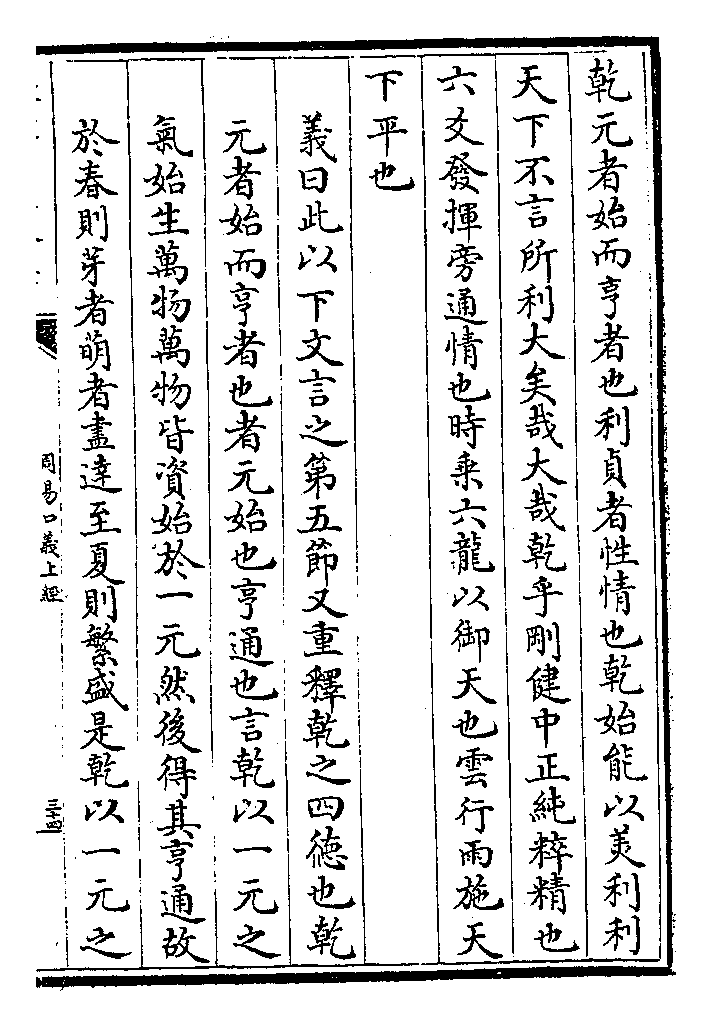 乾元者始而亨者也利貞者性情也乾始能以美利利
天下不言所利大矣哉大哉乾乎剛健中正純粹精也
六爻發揮旁通情也時乘六龍以御天也雲行雨施天
下平也
義曰此以下文言之第五節又重釋乾之四德也乾
元者始而亨者也者元始也亨通也言乾以一元之
氣始生萬物萬物皆資始於一元然後得其亨通故
於春則芽者萌者盡達至夏則繁盛是乾以一元之
周易口義上經
三十四